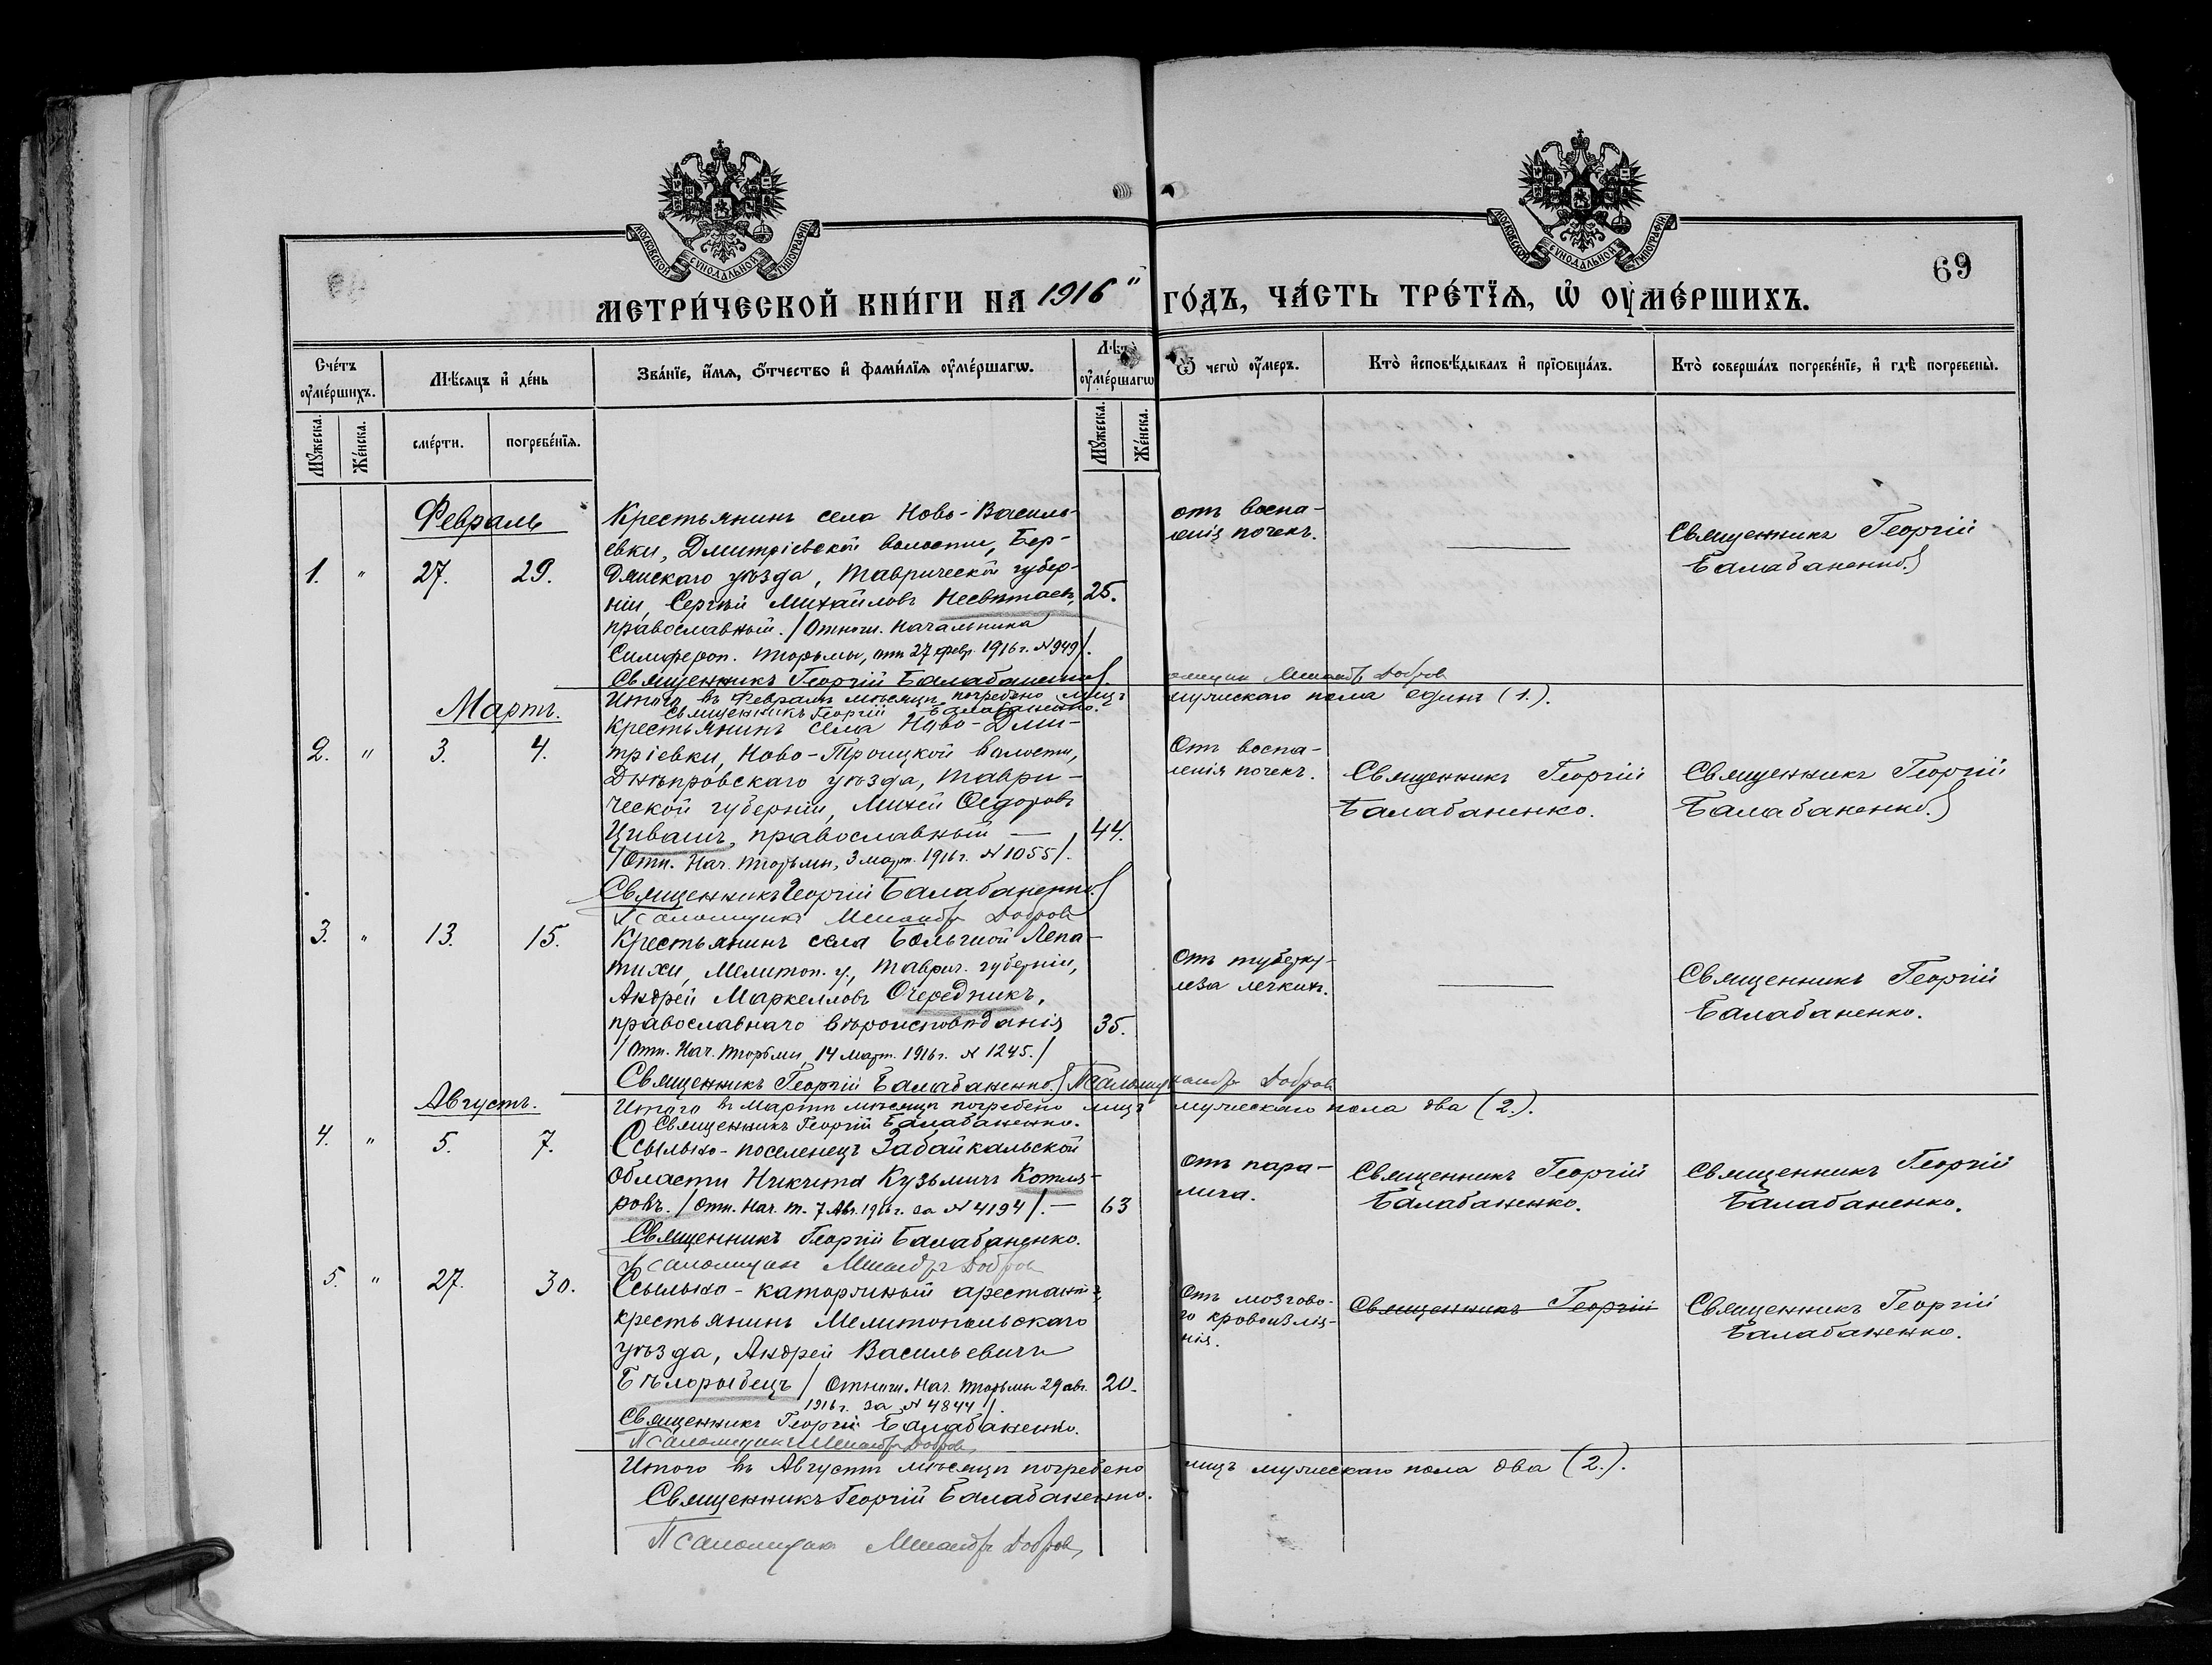 МОСКОВСКОЙ СУНОДАЛЬНОЙ ТИПОГРАФІИ
МОСКОВСКОЙ СУНОДАЛЬНОЙ ТИПОГРАФІИ
69
МЕТРИ́ЧЕСКОЙ КНИ́ГИ НА 1916" ГО́ДЪ, ЧА́СТЬ ТРЕ́ТІѦ, Ѡ҆ ОУ҆МЕ́РШИХЪ.
Сче́тъ оу҆ме́ршихъ.
Мѣ́сяцъ и҆ де́нь
Зва́ніе, и҆́мя, ѻ҆́тчество и҆ фами́лїя оу҆ме́ршагѡ.
Лѣт оу҆ме́ршагѡ
Ѿ чегѡ̀ оу҆́меръ.
Кто̀ и҆сповѣ́дывалъ и҆ прїѡбща́лъ.
Кто̀ соверша́лъ погребе́ніе, и҆ гдѣ̀ погребены̀.
Мꙋ́жеска.
Же́нска.
сме́рти.
погребе́нїя.
Мꙋ́жеска.
Же́нска.
Февраль
1. " 27. 29.
Крестьянинъ села Ново-Василь-
евки, Дмитріевской волости, Бер-
дянскаго уѣзда, Таврической губер-
ніи, Сергѣй Михайловъ Несвѣтаевъ, 25.
православный. /Отнош. Начальника
Симфероп. тюрьмы, отъ 27 февр. 1916 г. № 949/.
Священникъ Георгій Балабаненко.
отъ воспа-
ленія почекъ.
Священникъ Георгій
Балабаненко.
Добров
Итого въ Февралѣ мѣсяцѣ погребено лицъ мужескаго пола одинъ (1.).
Священникъ Георгій Балабаненко.
Мартъ.
2. " 3. 4.
Крестьянинъ села Ново-Дми-
тріевки, Ново-Троицкой волости,
Днѣпровскаго уѣзда, Таври-
ческой губерніи, Михей Ѳедоровъ
Цивашъ, православный — 44.
/Отн. Нач. тюрьмы, 3 март. 1916 г. № 1055/.
Священникъ Георгій Балабаненко.
Псаломщикъ Добров
Отъ воспа-
ленія почекъ.
Священникъ Георгій
Балабаненко.
Священникъ Георгій
Балабаненко.
3. " 13. 15.
Крестьянинъ села Большой Лепа-
тихи, Мелитоп. у., Таврич. губерніи,
Андрей Маркелловъ Очередникъ,
православнаго вѣроисповѣданія 35.
/Отн. Нач. тюрьмы, 14 март. 1916 г. № 1245./
Священникъ Георгій Балабаненко. Псаломщ Добров
Отъ туберку-
леза легкихъ.
Священникъ Георгій
Балабаненко.
Итого въ Мартѣ мѣсяцѣ погребено лицъ мужескаго пола два (2.).
Священникъ Георгій Балабаненко.
Августъ.
4. " 5. 7.
Ссыльно-поселенецъ Забайкальской
области Никита Кузьмичъ Котля-
ровъ. /Отн. Нач. т. 7 Авг. 1916 г. за № 4194/. — 63
Священникъ Георгій Балабаненко.
Псаломщик Добров
Отъ пара-
лича.
Священникъ Георгій
Балабаненко.
Священникъ Георгій
Балабаненко.
5. " 27. 30.
Ссыльно-каторжный арестантъ,
крестьянинъ Мелитопольскаго
уѣзда, Андрей Васильевичъ
Бѣлорыбецъ / Отнош. Нач. тюрьмы 29 авг. 20.
1916 г. за № 4844/.
Священникъ Георгій Балабаненко.
Псаломщикъ Добров
Отъ мозгово-
го кровоизлія-
нія.
Священникъ Георгій
Священникъ Георгій
Балабаненко.
Итого въ Августѣ мѣсяцѣ погребено лицъ мужескаго пола два (2.).
Священникъ Георгій Балабаненко.
Псаломщик Добров